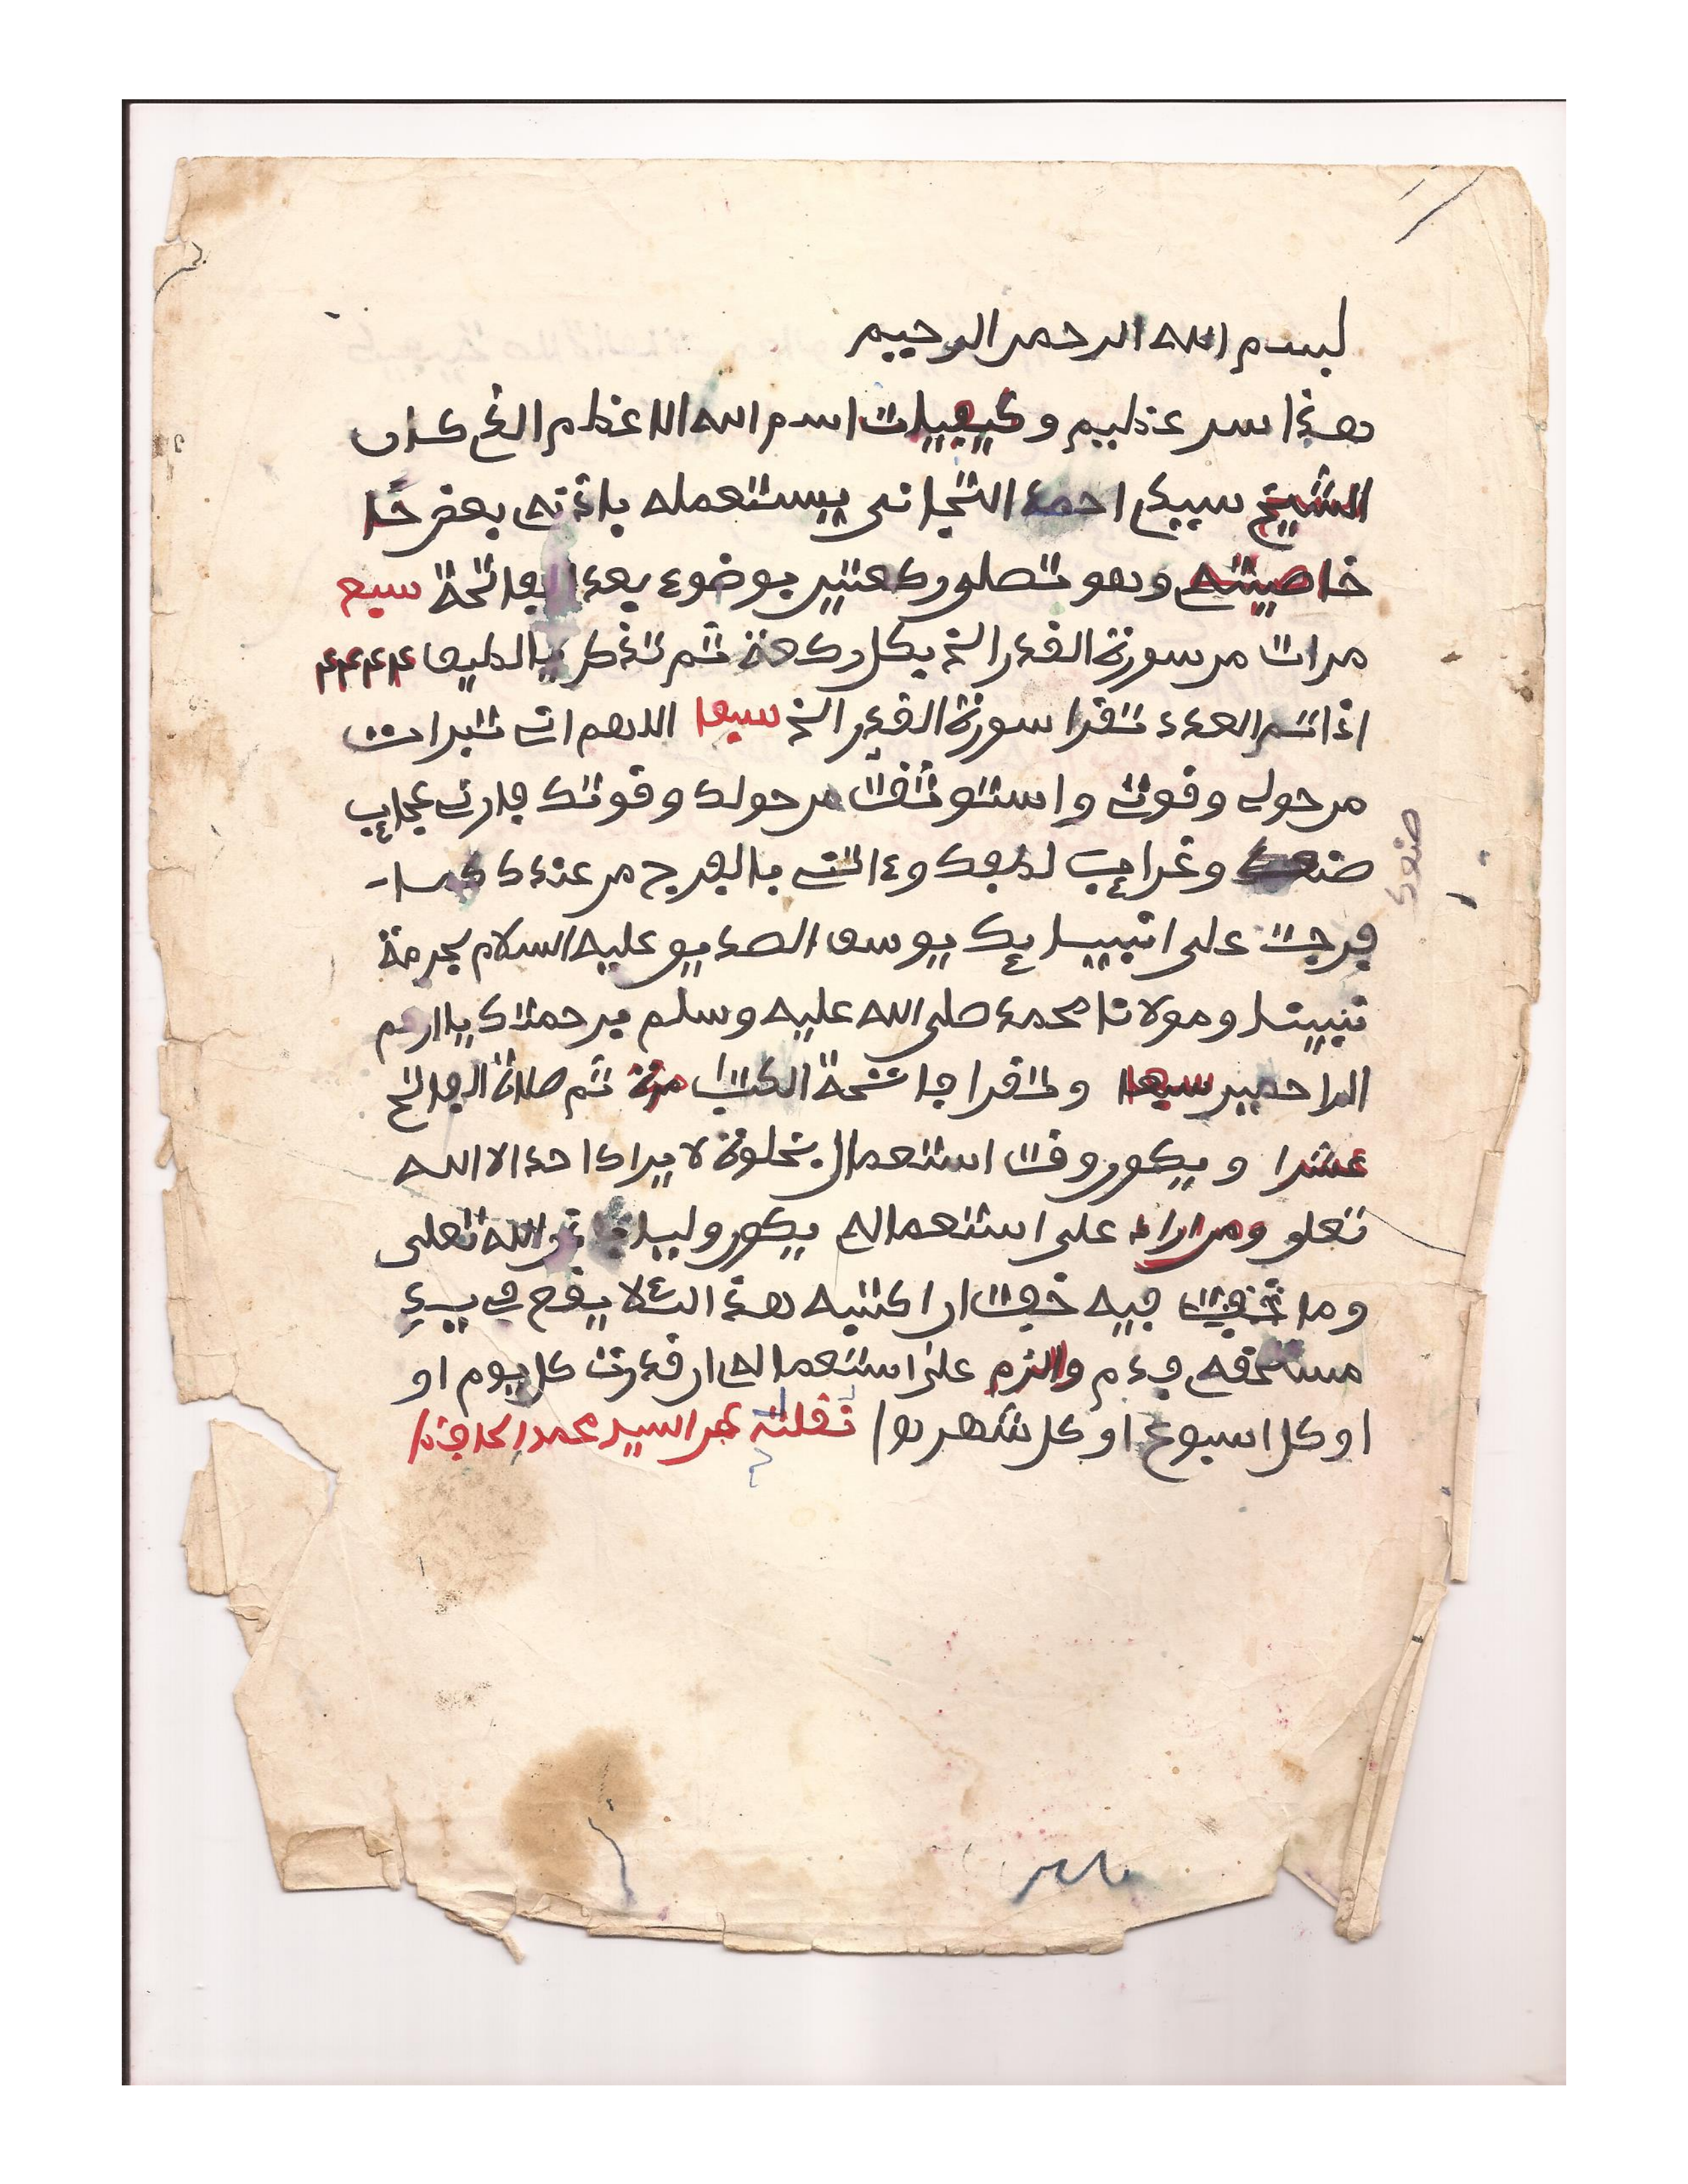 بسم الله الرحمن الرحيم
هذا سر عظيم وكيفيات اسم الله الاعظم الذي كان
الشيخ سيدي احمد التجاني يستعمله باذنى بعض خا
خاصيته وهو تصلى ركعتين بوضوء بعد الفاتحة سبع
مرات من سورة القدر الخ بكل ركعة ثم تذكر يا لطيف ٤٤٤٤
اذا تم العدد تقرا سورة القدر الخ سبعا اللهم انى تبرات
من حولى وقوتى واستوثقت من حولك وقوتك فارنى عجايب
صنعك وغرايب لطفك وءاتنى بالفرج من عندك كما
فرجت على انبيايك يوسف الصديق عليه السلام بحرمة
نبينا ومولانا محمد صلى الله عليه وسلم برحمتك يا ارحم
الراحمين سبعا وتقرا فاتحة الكتب مرة ثم صلاة الفاتح
عشرا ويكون وقت استعمال بخلوة لا يراك احد الا الله
تعلى ومن اراد على استعماله يكون وليا باذن الله تعلى
وما فيه خفت ان اكتبه هذا لئلا يقع في يد
مستحقه فدم والزم على استعماله ان قدرت كل يوم او
او كل اسبوع او كل شهر نقلته عن السيد محمد الحافظ
صنعك